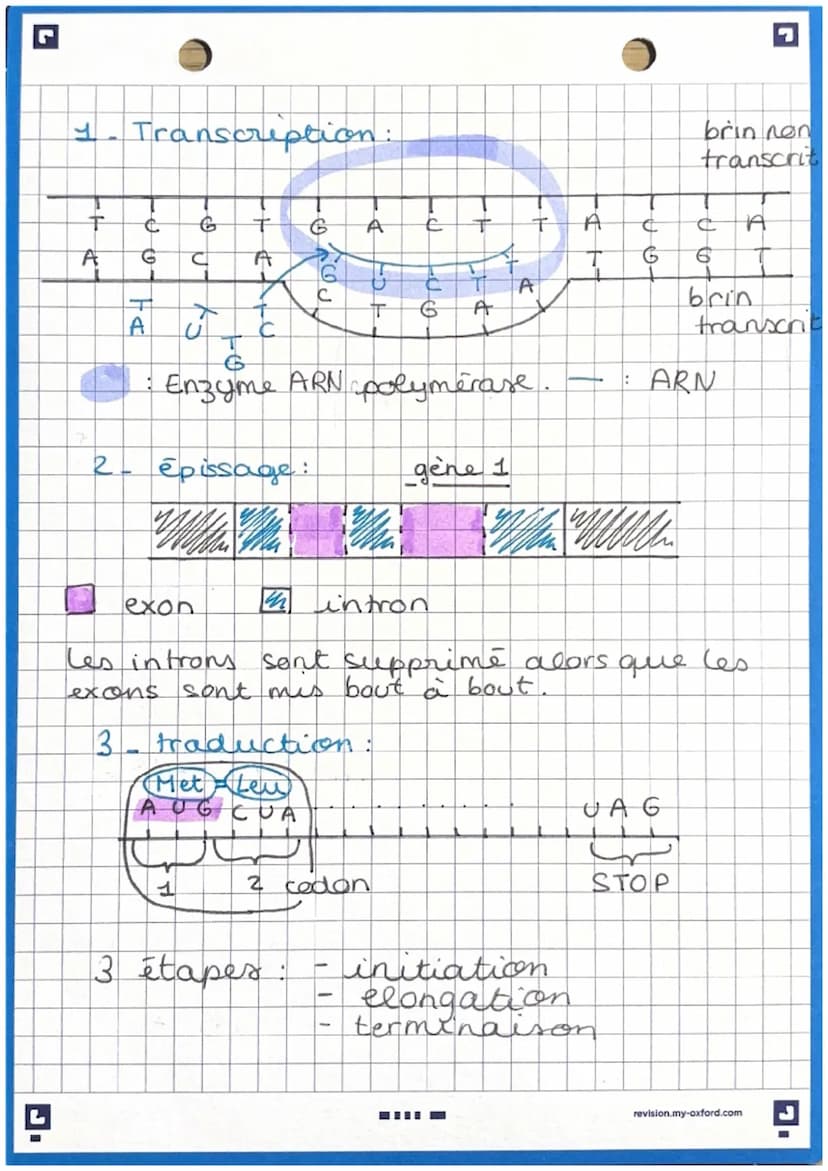 1 - Transcription :
brin non
transcrit
T C G T G A C T T A C C A
A G C A G U C T T T G G T
C T G A A
brin
transcrit
T T T
A U C
T
G
: Enzyme ARN polymérase. — : ARN
2 - épissage :
gène 1
exon intron
Les introns sont supprimé alors que les
exons sont mis bout à bout.
3 - traduction :
Met = Leu
A U G C U A . . . . . . . . U A G
1 2 codon STOP
3 étapes : - initiation
- elongation
- terminaison
revision.my-oxford.com